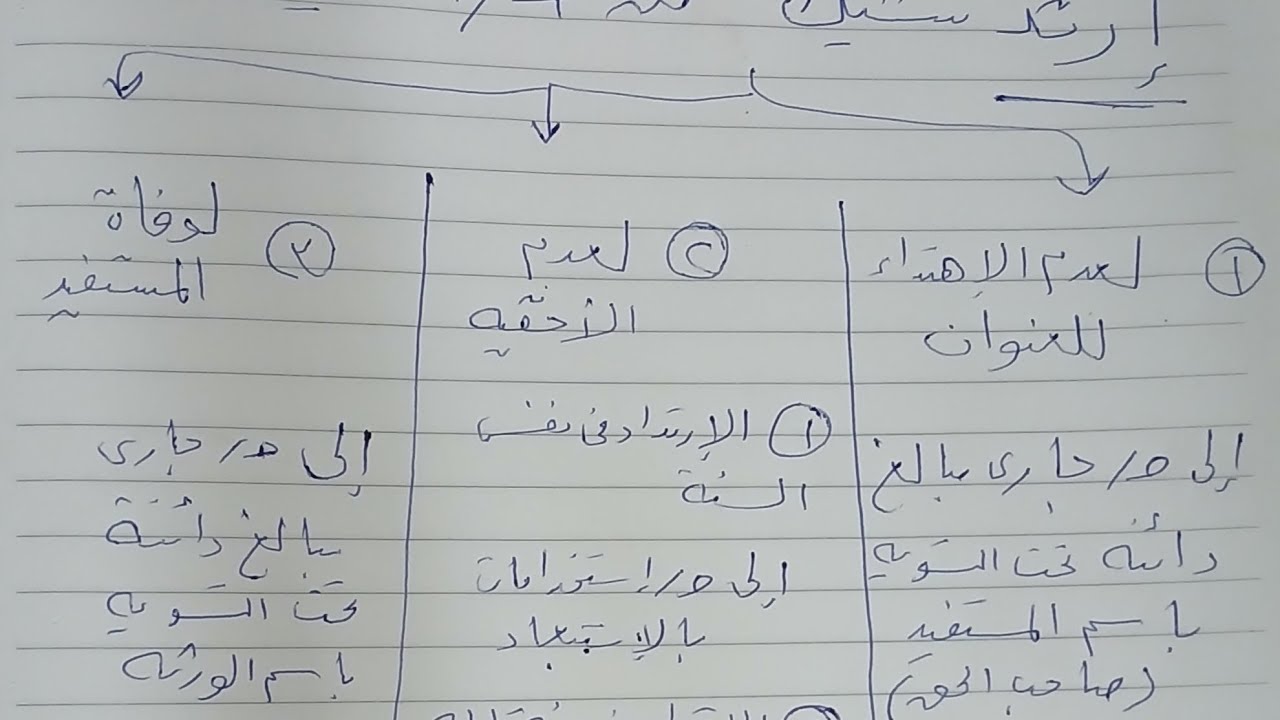 أرتد شيك
①
لعدم الإهتداء
للعنوان
إلى حـ/ جارى مبالغ
دائنه تحت التسويه
باسم المستفيد
(صاحب الحق)
②
لعدم
الأحقيه
① الإرتداد فى نفس
السنة
إلى حـ/ إستخدامات
بالإستبعاد
③
لوفاة
المستفيد
إلى حـ/ جارى
مبالغ دائنة
تحت التسويه
باسم الورثه